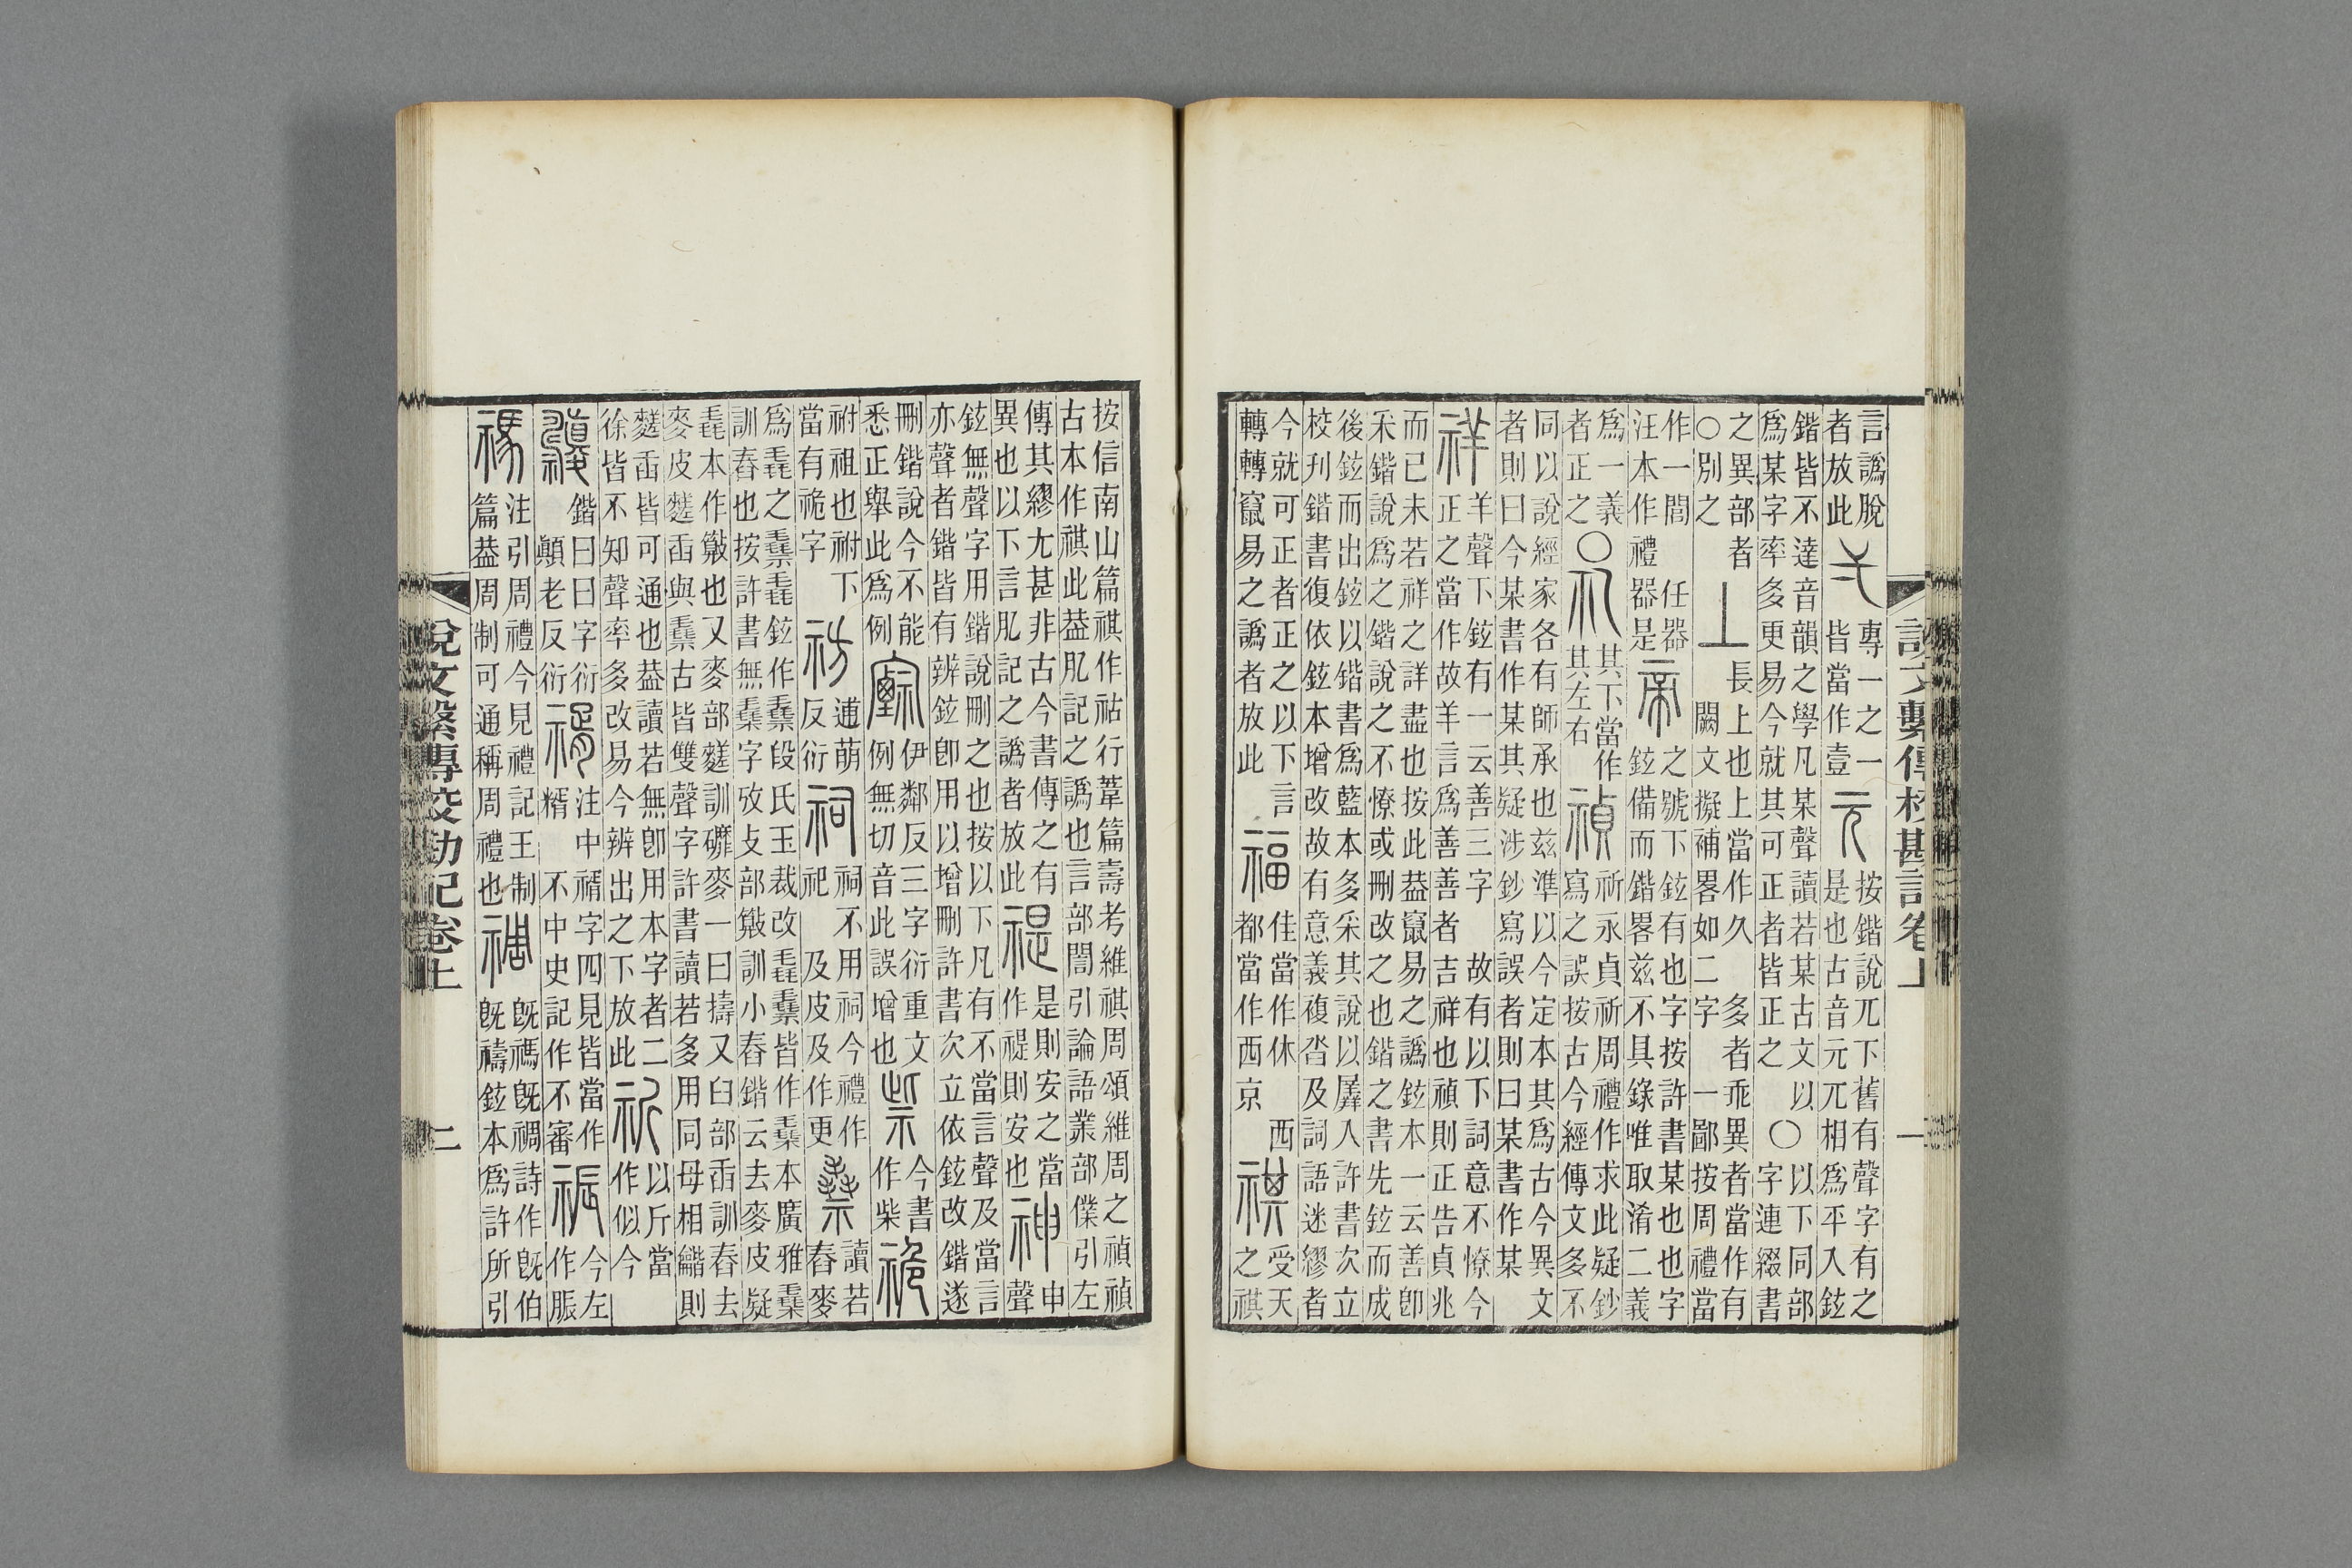 說文繫傳校勘記卷上 一
言譌脫
者放此
弌
專一之一
皆當作壹
元
按鍇說兀下舊有聲字有之
是也古音元兀相爲平入鉉
鍇皆不達音韻之學凡某聲讀若某古文以
爲某字率多更易今就其可正者皆正之
〇
以下同部
字連綴書
之異部者
〇別之
丄
長上也上當作久
闕文擬補畧如二字
多者乖異者當作有
一鄙按周禮當
作一閭 任器
汪本作禮器是
帝
之號下鉉有也字按許書某也也字
鉉備而鍇畧兹不具錄唯取淆二義
爲一義
者正之
〇
礼
其下當作
其左右
禎
祈永貞祈周禮作求此疑鈔
寫之誤按古今經傳文多不
同以說經家各有師承也兹準以今定本其爲古今異文
者則曰今某書作某其疑涉鈔寫誤者則曰某書作某
祥
羊聲下鉉有一云善三字 故有以下詞意不憭今
正之當作故羊言爲善善者吉祥也禎則正告貞兆
而已未若祥之詳盡也按此葢竄易之譌鉉本一云善卽
采鍇說爲之鍇說之不憭或刪改之也鍇之書先鉉而成
後鉉而出鉉以鍇書爲藍本多采其說以羼入許書次立
校刊鍇書復依鉉本增改故有意義複沓及詞語迷繆者
今就可正者正之以下言
轉轉竄易之譌者放此
福
佳當作休 西
都當作西京
祺
受天
之祺
按信南山篇祺作祜行葦篇壽考維祺周頌維周之禎禎
古本作祺此葢凡記之譌也言部誾引論語業部僕引左
傳其繆尤甚非古今書傳之有
異也以下言凡記之譌者放此
禔
是則安之當
作禔則安也
神
申
聲
鉉無聲字用鍇說刪之也按以下凡有不當言聲及當言
亦聲者鍇皆有辨鉉卽用以增刪許書次立依鉉改鍇遂
刪鍇說今不能
悉正舉此爲例
伊鄰反三字衍重文
例無切音此誤增也
祡
今書
作柴
祪
祔祖也祔下
當有祪字
祊
逋萌
反衍
祠
祠不用祠今禮作
祀 及皮及作更
讀若
舂麥
爲毳之 毳鉉作 段氏玉裁改 皆作 本廣雅
訓舂也按許書無 字攷攴部 訓小舂鍇云去麥皮疑
毳本作 也又麥部 訓 麥一曰擣又臼部臿訓舂去
麥皮 臿與 古皆雙聲字許書讀若多用同母相 則
臿皆可通也葢讀若無卽用本字者二
徐皆不知聲率多改易今辨出之下放此
祈
以斤當
作似今
鍇曰曰字衍
顚老反衍
注中 字四見皆當作
糈 不中史記作不審
祳
今左
作脤
禡
注引周禮今見禮記王制
篇葢周制可通稱周禮也
禂
既禡既禂詩作既伯
既禱鉉本爲許所引
說文繫傳校勘記卷上 二